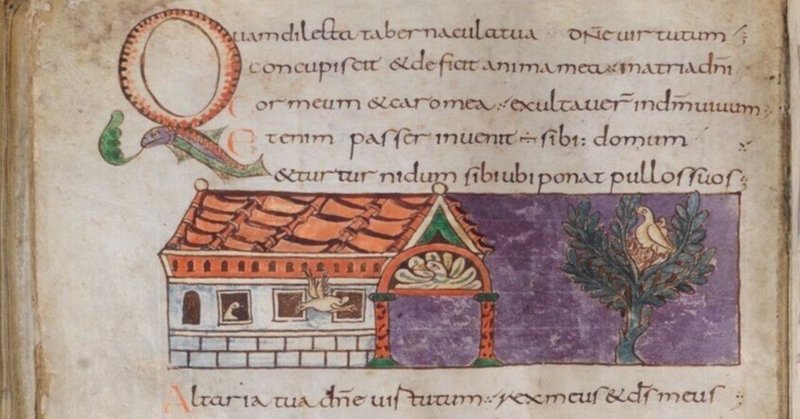 Quam dilecta tabernacula tua dñe virtutum
concupiscit & deficit anima mea in atria dñi
Cor meum & caro mea exultaver̄ in dm̄ vivum
Etenim passer invenit ÷ sibi: domum
& turtur nidum sibi ubi ponat pullos suos
Altaria tua dñe virtutum rex meus & d̄s meus